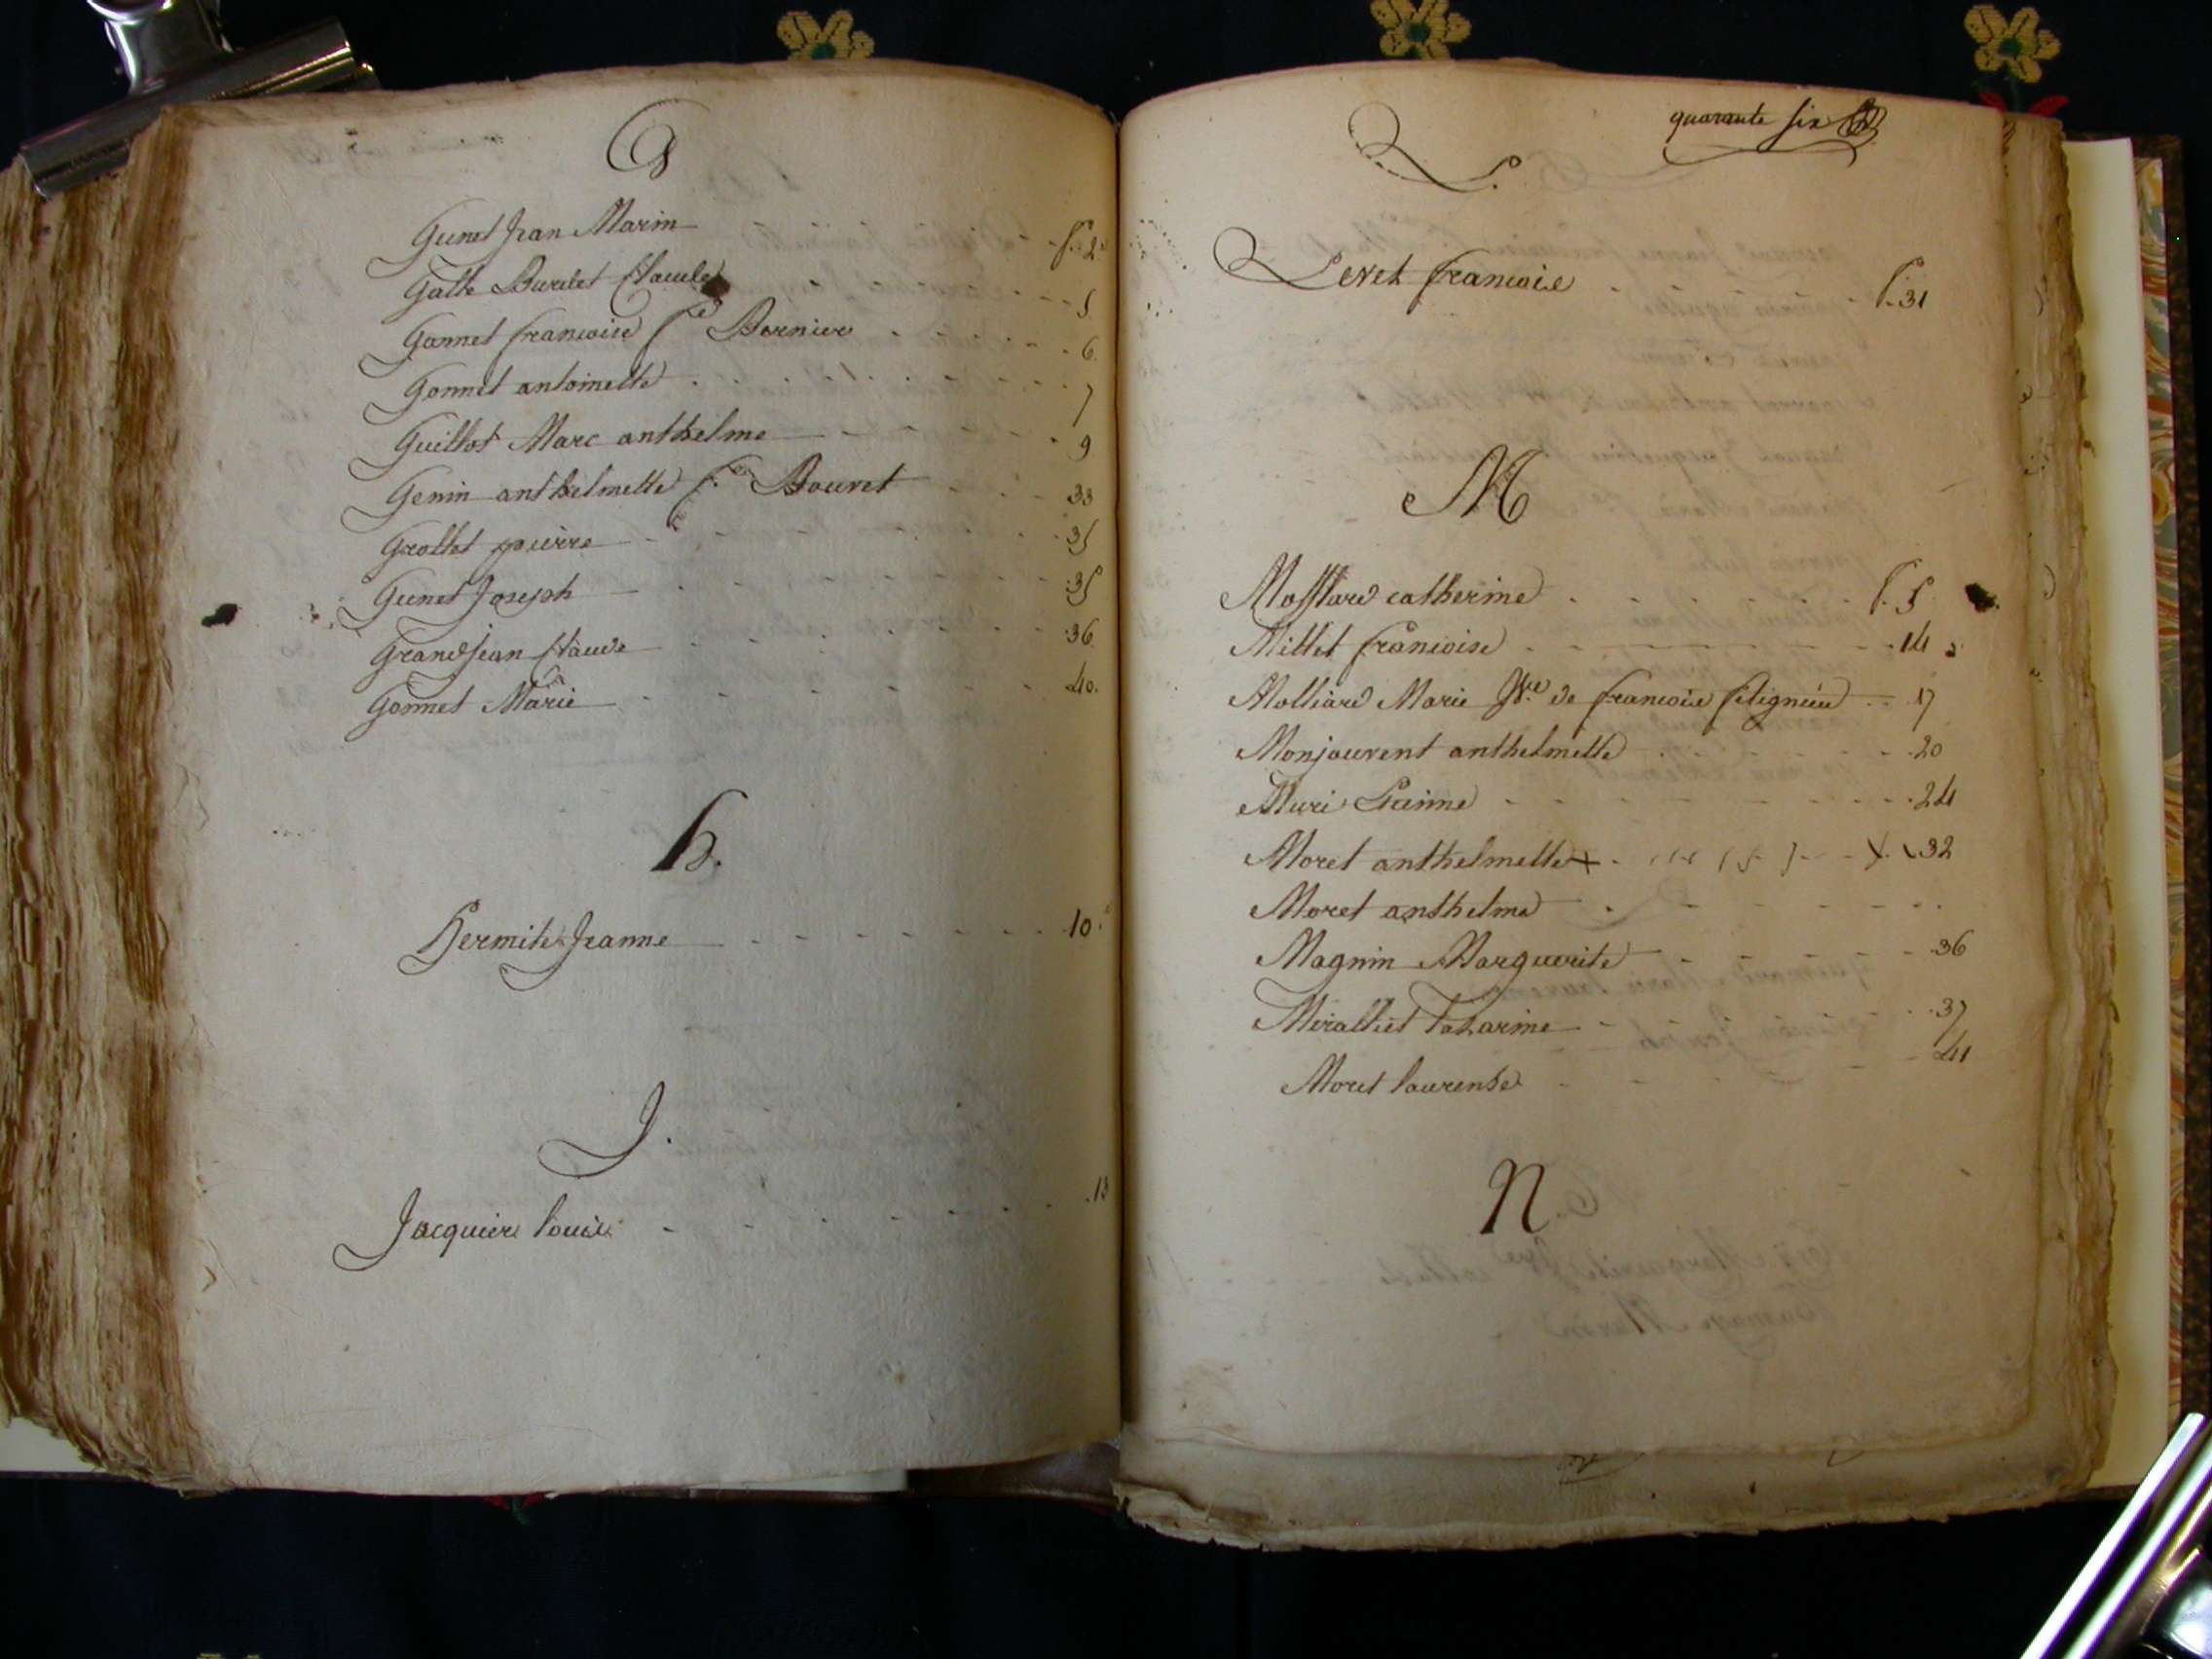 G
Gunet Jean Marin - - - - - f. 2
Gallle Burlet Claude - - - - 5
Gonnet francoise fe Bornier - - - - 6.
Gonnet antoinette - - - - 7
Guillot Marc anthelme - - - - 9
Genin anthelmette fe Bouvet - - - 33
Grollet pierre - - - - 35
Gunet Joseph - - - - 35
Grandjean Claude - - - - 36
Gonnet Marie - - - - 40.
h.
hermite Jeanne - - - - 10.
J.
Jacquier louise - - - - 13
quarante six
L.
Levet francoise - - f. 31
M
catherine - - - - f. 5
Millet francoise - - - - 14
Molliard Marie Vve de francoise - - 17
Monjouvent anthelmette - - - 20
Muri - - - - 24
Moret anthelmette + - - - - 32
Moret anthelme - - - -
Magnin Marguerite - - - - 36
- - - - 37
Moret laurense - - - - 41
N.